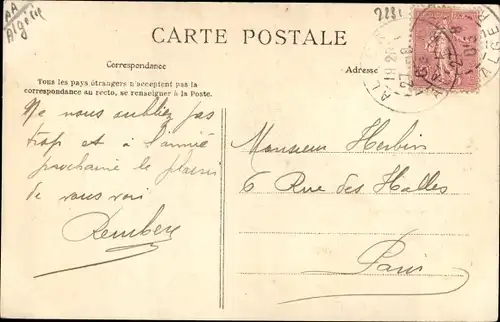 AA
Algérie
CARTE POSTALE
Correspondance
Adresse
Tous les pays étrangers n'acceptent pas la
correspondance au recto, se renseigner à la Poste.
Ne nous oubliez pas
trop et à l'année
prochaine le plaisir
de vous voir
Monsieur Herbin
6 Rue des Halles
Paris
ALGER